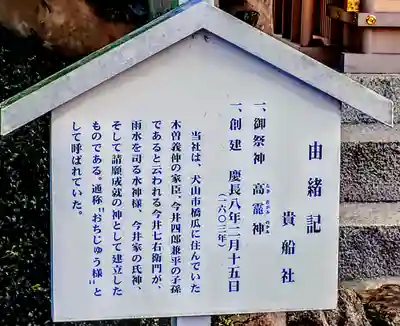 由緒記
貴船社
一、御祭神 高龗神
たか おかみ のかみ
一、創建 慶長八年二月十五日
(一六〇三年)
当社は、犬山市橋爪に住んでいた
木曽義仲の家臣、今井四郎兼平の子孫
であると云われる今井七右衛門が、
雨水を司る水神様、今井家の氏神、
そして請願成就の神として建立した
ものである。通称“おちじゅう様”と
して呼ばれていた。